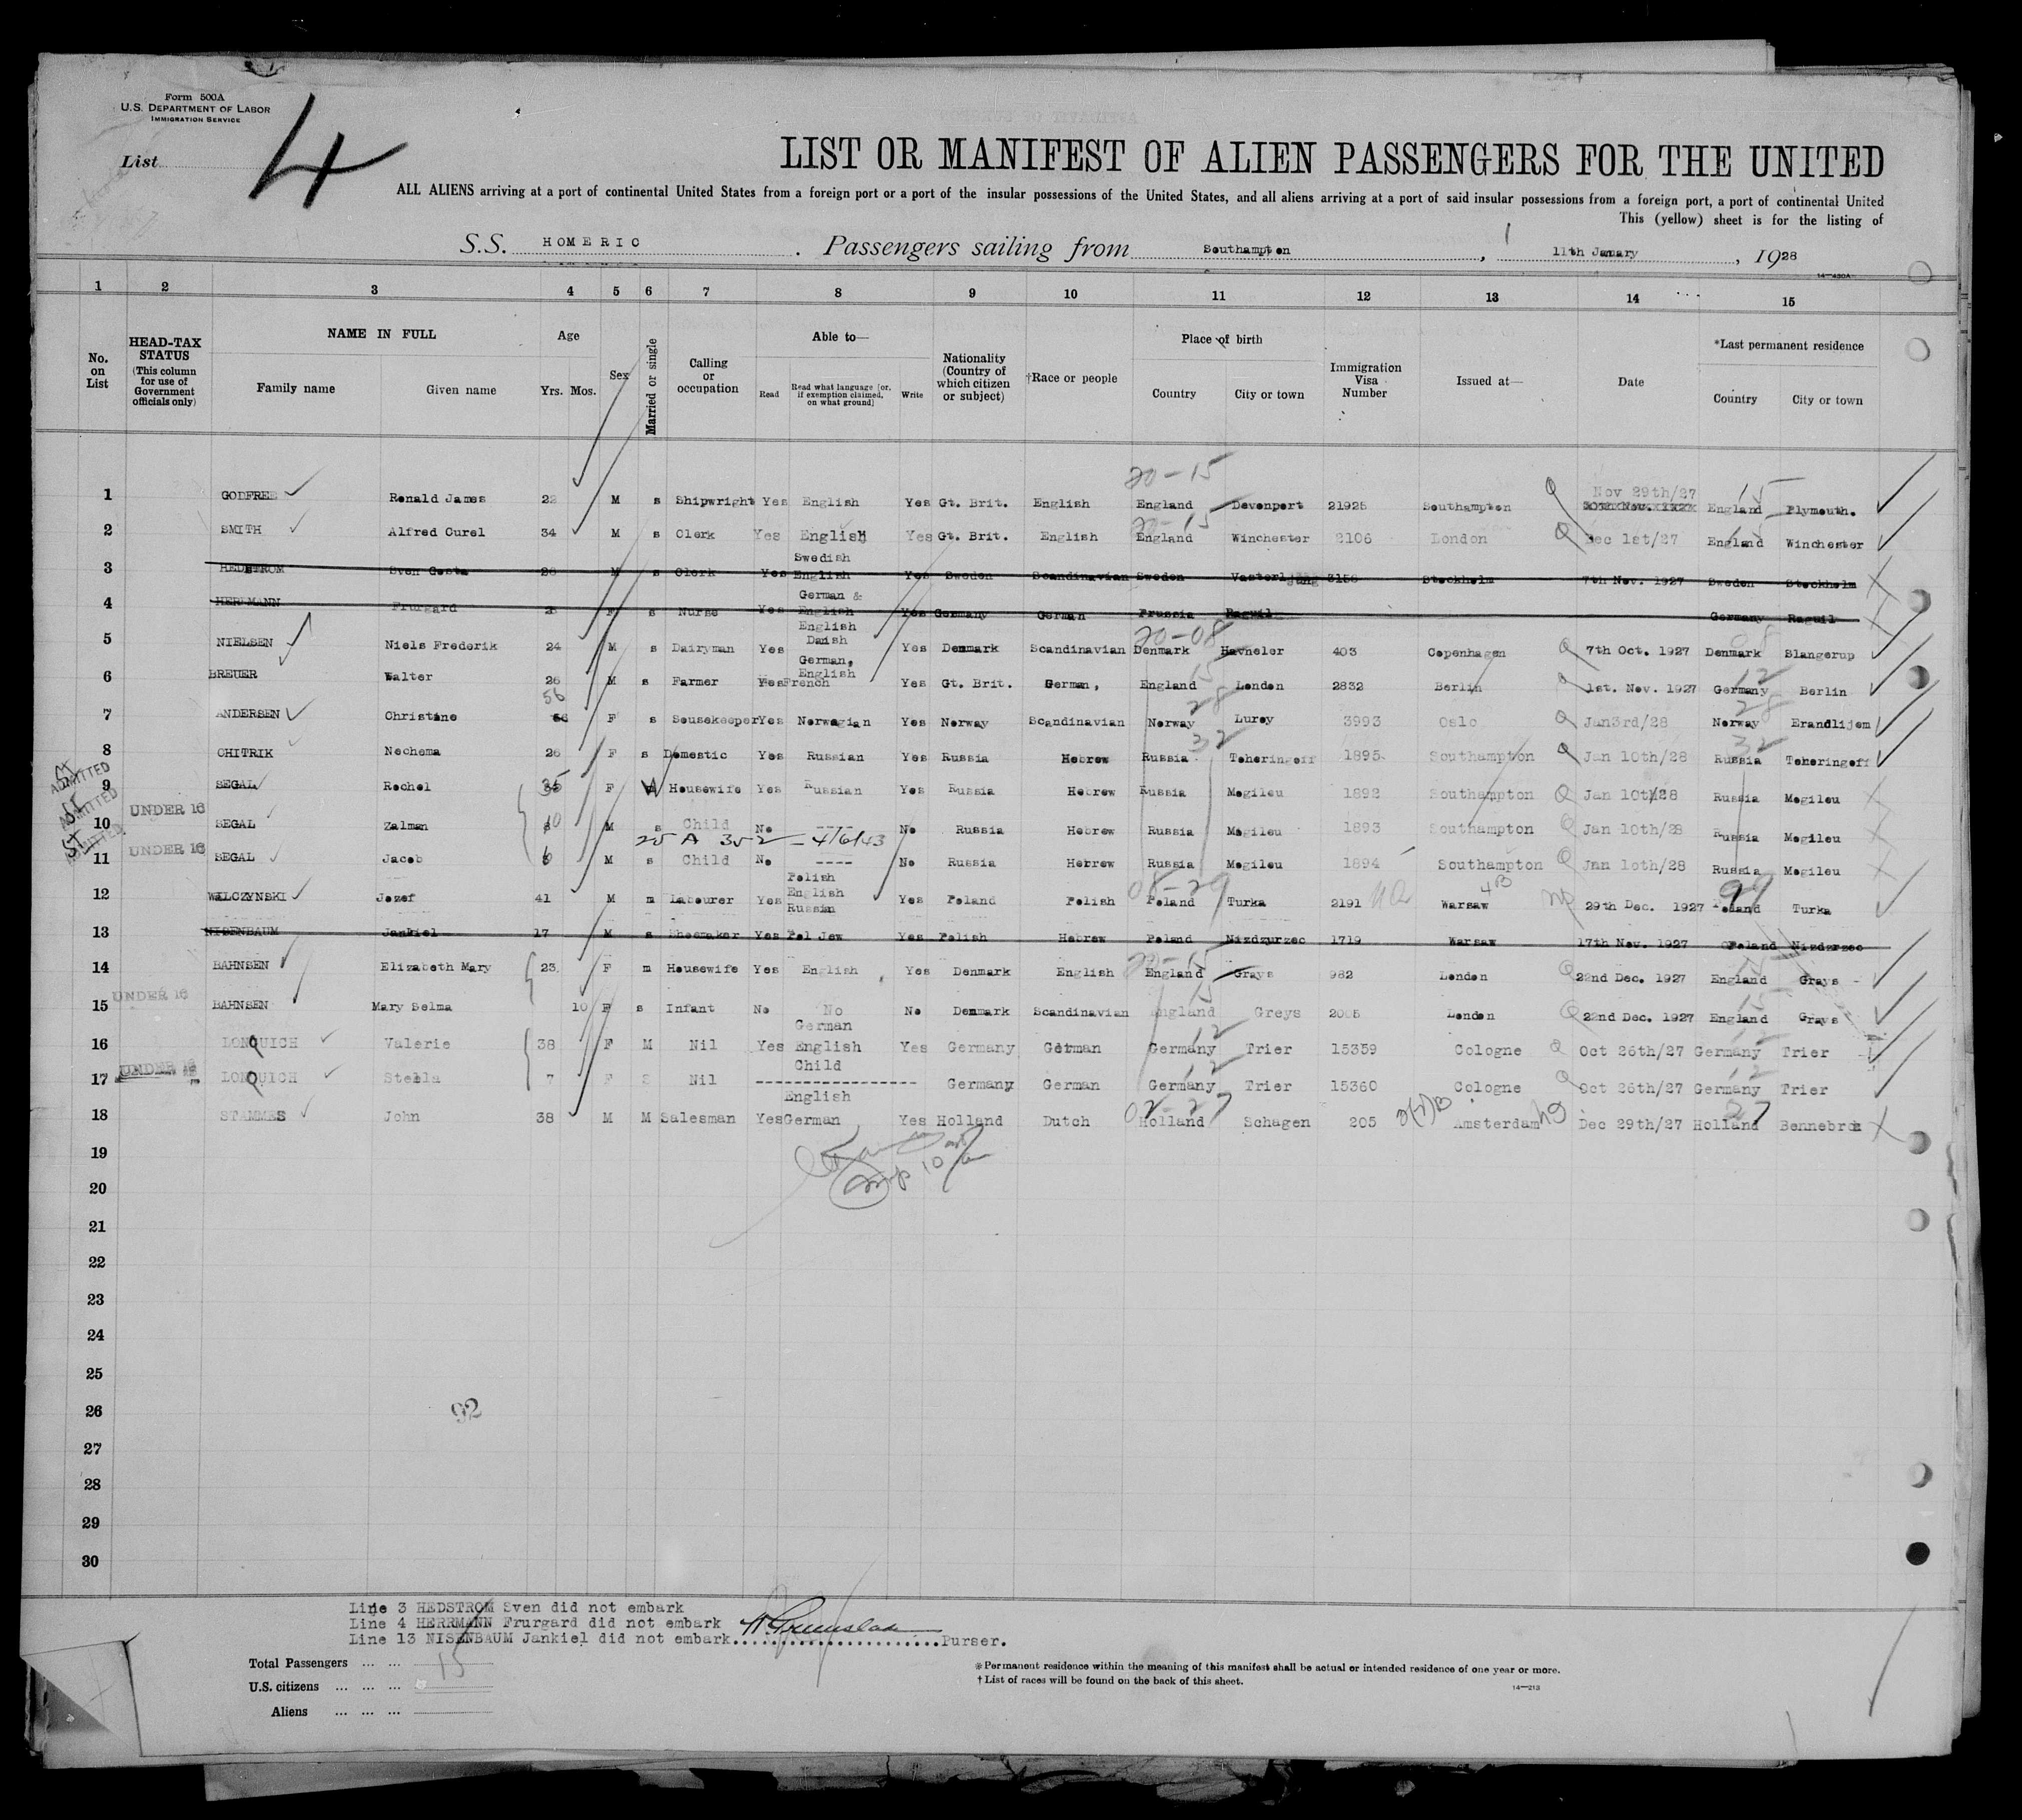 Form 500A
U.S. DEPARTMENT OF LABOR
IMMIGRATION SERVICE
List 4
LIST OR MANIFEST OF ALIEN PASSENGERS FOR THE UNITED
ALL ALIENS arriving at a port of continental United States from a foreign port or a port of the insular possessions of the United States, and all aliens arriving at a port of said insular possessions from a foreign port, a port of continental United
This (yellow) sheet is for the listing of
S.S. HOMERIC. Passengers sailing from Southampton, 11th January, 1928
14-430A
1 2 3 4 5 6 7 8 9 10 11 12 13 14 15
No. on List
HEAD-TAX STATUS (This column for use of Government officials only)
NAME IN FULL
Family name Given name
Age Yrs. Mos.
Sex
Married or single
Calling or occupation
Able to—
Read
Read what language [or, if exemption claimed, on what ground]
Write
Nationality (Country of which citizen or subject)
†Race or people
Place of birth
Country City or town
Immigration Visa Number
Issued at—
Date
*Last permanent residence
Country City or town
20-15
1 GODFREE Ronald James 22 M s Shipwright Yes English Yes Gt. Brit. English England Devonport 21925 Southampton Nov 29th/27 England 15 Plymouth.
2 SMITH Alfred Curel 34 M s Clerk Yes English Yes Gt. Brit. English England 20-15 Winchester 2106 London Dec 1st/27 England 15 Winchester
3 HEDSTROM Sven Gosta 28 M s Clerk Yes Swedish English Yes Sweden Scandinavian Sweden 3156 Stockholm 7th Nov. 1927 Sweden Stockholm
4 HERRMANN Frurgard F s Nurse Yes German & English Yes Germany German Prussia Raguil Germany Raguil
5 NIELSEN Niels Frederik 24 M s Dairyman Yes English Danish Yes Denmark Scandinavian Denmark 20-08 Havneler 403 Copenhagen 7th Oct. 1927 Denmark 08 Slangerup
6 BREUER Walter 26 M s Farmer Yes German, English French Yes Gt. Brit. German, England 15 London 2832 Berlin 1st. Nov. 1927 Germany 12 Berlin
7 ANDERSEN Christine 56 F s Housekeeper Yes Norwegian Yes Norway Scandinavian Norway 28 Luroy 3993 Oslo Jan3rd/28 Norway 28 Erandlijem
8 CHITRIK Nechema 26 F s Domestic Yes Russian Yes Russia Hebrew Russia 32 Tcheringoff 1895 Southampton Jan 10th/28 Russia 32 Tcheringoff
ST ADMITTED
9 SEGAL Rochel 35 F Housewife Yes Russian Yes Russia Hebrew Russia Mogileu 1892 Southampton Jan 10th/28 Russia Mogileu
ST ADMITTED
10 UNDER 16 SEGAL Zalman 10 M s Child No ---- No Russia Hebrew Russia Mogileu 1893 Southampton Jan 10th/28 Russia Mogileu
25 A 352 - 4/6/43
ST ADMITTED
11 UNDER 16 SEGAL Jacob 6 M s Child No ---- No Russia Hebrew Russia Mogileu 1894 Southampton Jan 10th/28 Russia Mogileu
12 WALCZYNSKI Jozef 41 M m Labourer Yes Polish English Russian Yes Poland Polish Poland 08-29 Turka 2191 Warsaw 4B 29th Dec. 1927 Poland 29 Turka
13 NISENBAUM Jankiel 17 M s Shoemaker Yes Pol Jew Yes Polish Hebrew Poland Nizdzurzec 1719 Warsaw 17th Nov. 1927 Poland Nizdzrzec
14 BAHNSEN Elizabeth Mary 23 F m Housewife Yes English Yes Denmark English England 20-15 Grays 982 London 22nd Dec. 1927 England 15 Grays
15 UNDER 16 BAHNSEN Mary Selma 10 F s Infant No No No Denmark Scandinavian England 15 Greys 2005 London 22nd Dec. 1927 England 15 Grays
16 LONQUICH Valerie 38 F M Nil Yes German English Yes Germany German Germany 12 Trier 15359 Cologne Oct 26th/27 Germany 12 Trier
17 UNDER 16 LONQUICH Stella 7 F S Nil Child ---------------- Germany German Germany 12 Trier 15360 Cologne Oct 26th/27 Germany 12 Trier
18 STAMMES John 38 M M Salesman Yes English German Yes Holland Dutch Holland 02-27 Schagen 205 Amsterdam Dec 29th/27 Holland 27 Bennebrok
19
20
21
22
23
24
25
26
92
27
28
29
30
Line 3 HEDSTROM Sven did not embark
Line 4 HERRMANN Frurgard did not embark
Line 13 NISENBAUM Jankiel did not embark.......................Purser.
Total Passengers ... ... 15
U.S. citizens ... ... ...
Aliens ... ... ...
*Permanent residence within the meaning of this manifest shall be actual or intended residence of one year or more.
†List of races will be found on the back of this sheet.
14-213